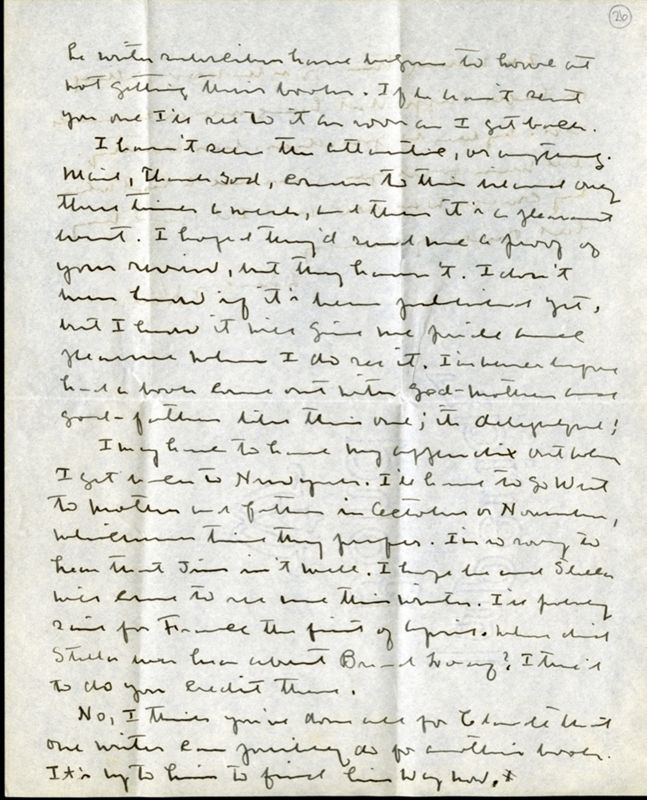 26
he writes subscribers have begun to howl at
not getting their books. If he hasn't sent
you one I'll see to it as soon as I get back.
I haven't seen the Atlantic, or anything.
Mail, thank God, comes to this island only
three times a week, and then it's a pleasant
event. I hoped they'd send me a proof of
your review, but they haven't. I don't
even know if it's been published yet,
but I know it will give me pride and
pleasure when I do see it. I've never before
had a book come out with god-mothers and
god-fathers like this one; it's delightful!
I may have to have my appendix out when
I get back to New York. I'll have to go West
to mother and father in October or November,
whichever time they prefer. I'm so sorry to
hear that Jim isn't well. I hope he and Stella
will come to see me this winter. I'll probably
sail for France the first of April. When did
Stella ever hear about Bread Loaf? I tried
to do you credit there.
No, I think you've done all for Claude that
one writer can possibly do for another's book.
It's up to him to find his way now.*